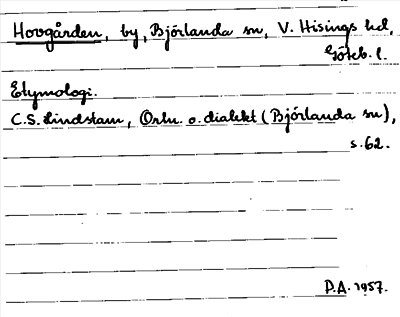 Hovgården, by, Björlanda sn, V. Hisings hd,
Göteb. l.
Etymologi.
C.S. Lindstam, Ortn. o. dialekt (Björlanda sn),
s. 62.
D.A. 1957.